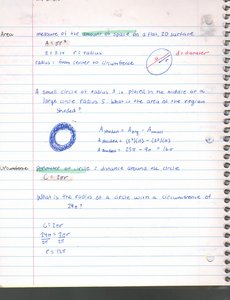 Area measure of the amount of space on a flat 2D surface
A = πr²
π = 3.14 r = radius
d = diameter
radius: from center to circumference
A small circle of radius 3 is placed in the middle of a
large circle radius 5. What is the area of the region
shaded?
A shaded = A big - A small
A shaded = (5²)(π) - (3²)(π)
A shaded = 25π - 9π = 16π
Circumference perimeter of circle: distance around the circle
C = 2πr
What is the radius of a circle with a circumference of
24π?
C = 2πr
24π = 2πr
2π 2π
r = 12